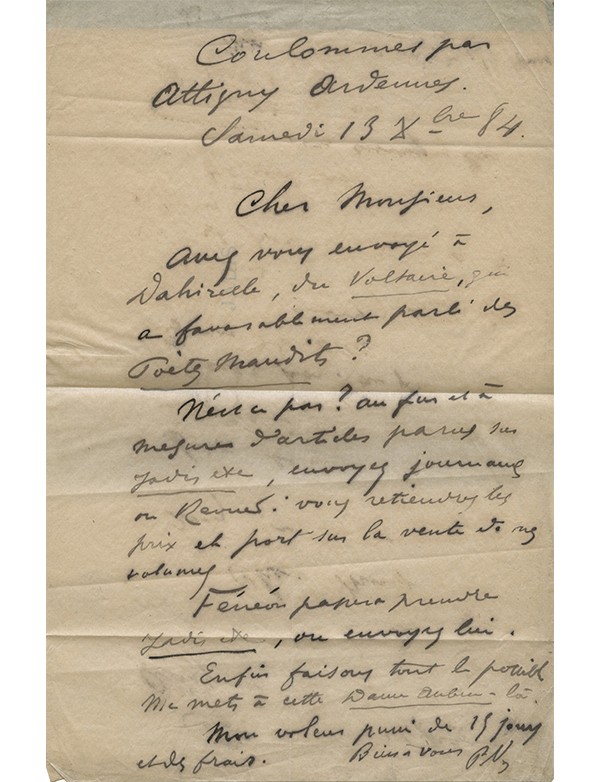 Coulommes par
Attigny Ardennes.
Samedi 13 Xbre 84.
Cher Monsieur,
Avez vous envoyé à
du Voltaire, qui
a favorablement parlé des
Poètes Maudits ?
N'est ce pas ? au fur et à
mesures d'articles parus sur
Jadis etc, envoyez journaux
ou Revues : vous retiendrez les
prix et port sur la vente de mes
volumes
Fénéon passera prendre
Jadis etc, ou envoyez lui.
Enfin faisons tout le possible
Me mets à cette Dame Aubin-là.
Mon voleur puni de 15 jours
et des frais. Bien à vous PV